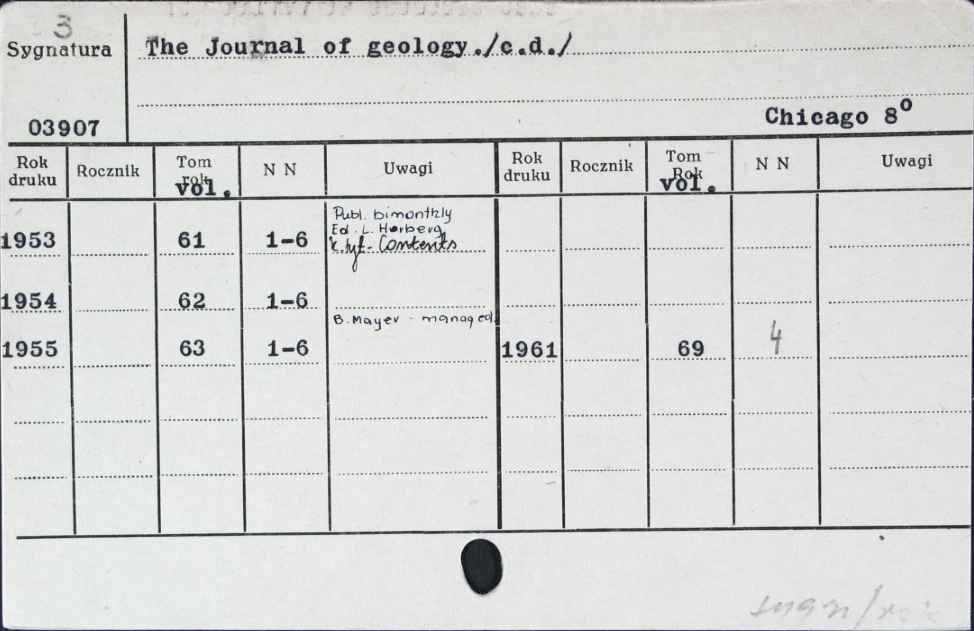 3
Sygnatura
The Journal of geology./c.d./
03907
Chicago 8⁰
Rok druku Rocznik Tom rok vol. N N Uwagi Rok druku Rocznik Tom Rok vol. N N Uwagi
Publ. bimonthly
Ed. L. Horberg
1953 61 1-6 Contents
1954 62 1-6
B. Mayer - manag ed.
1955 63 1-6 1961 69 4